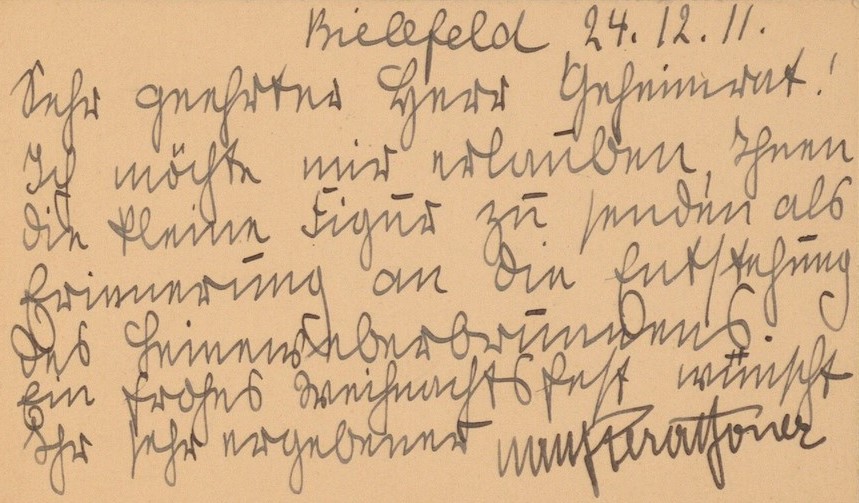 Bielefeld 24.12.11.
Sehr geehrter Herr Geheimrat!
Ich möchte mir erlauben, Ihnen
die kleine Figur zu senden als
Erinnerung an die Entstehung
des Leineweberbrunnens.
Ein frohes Weihnachtsfest wünscht
Ihr sehr ergebener